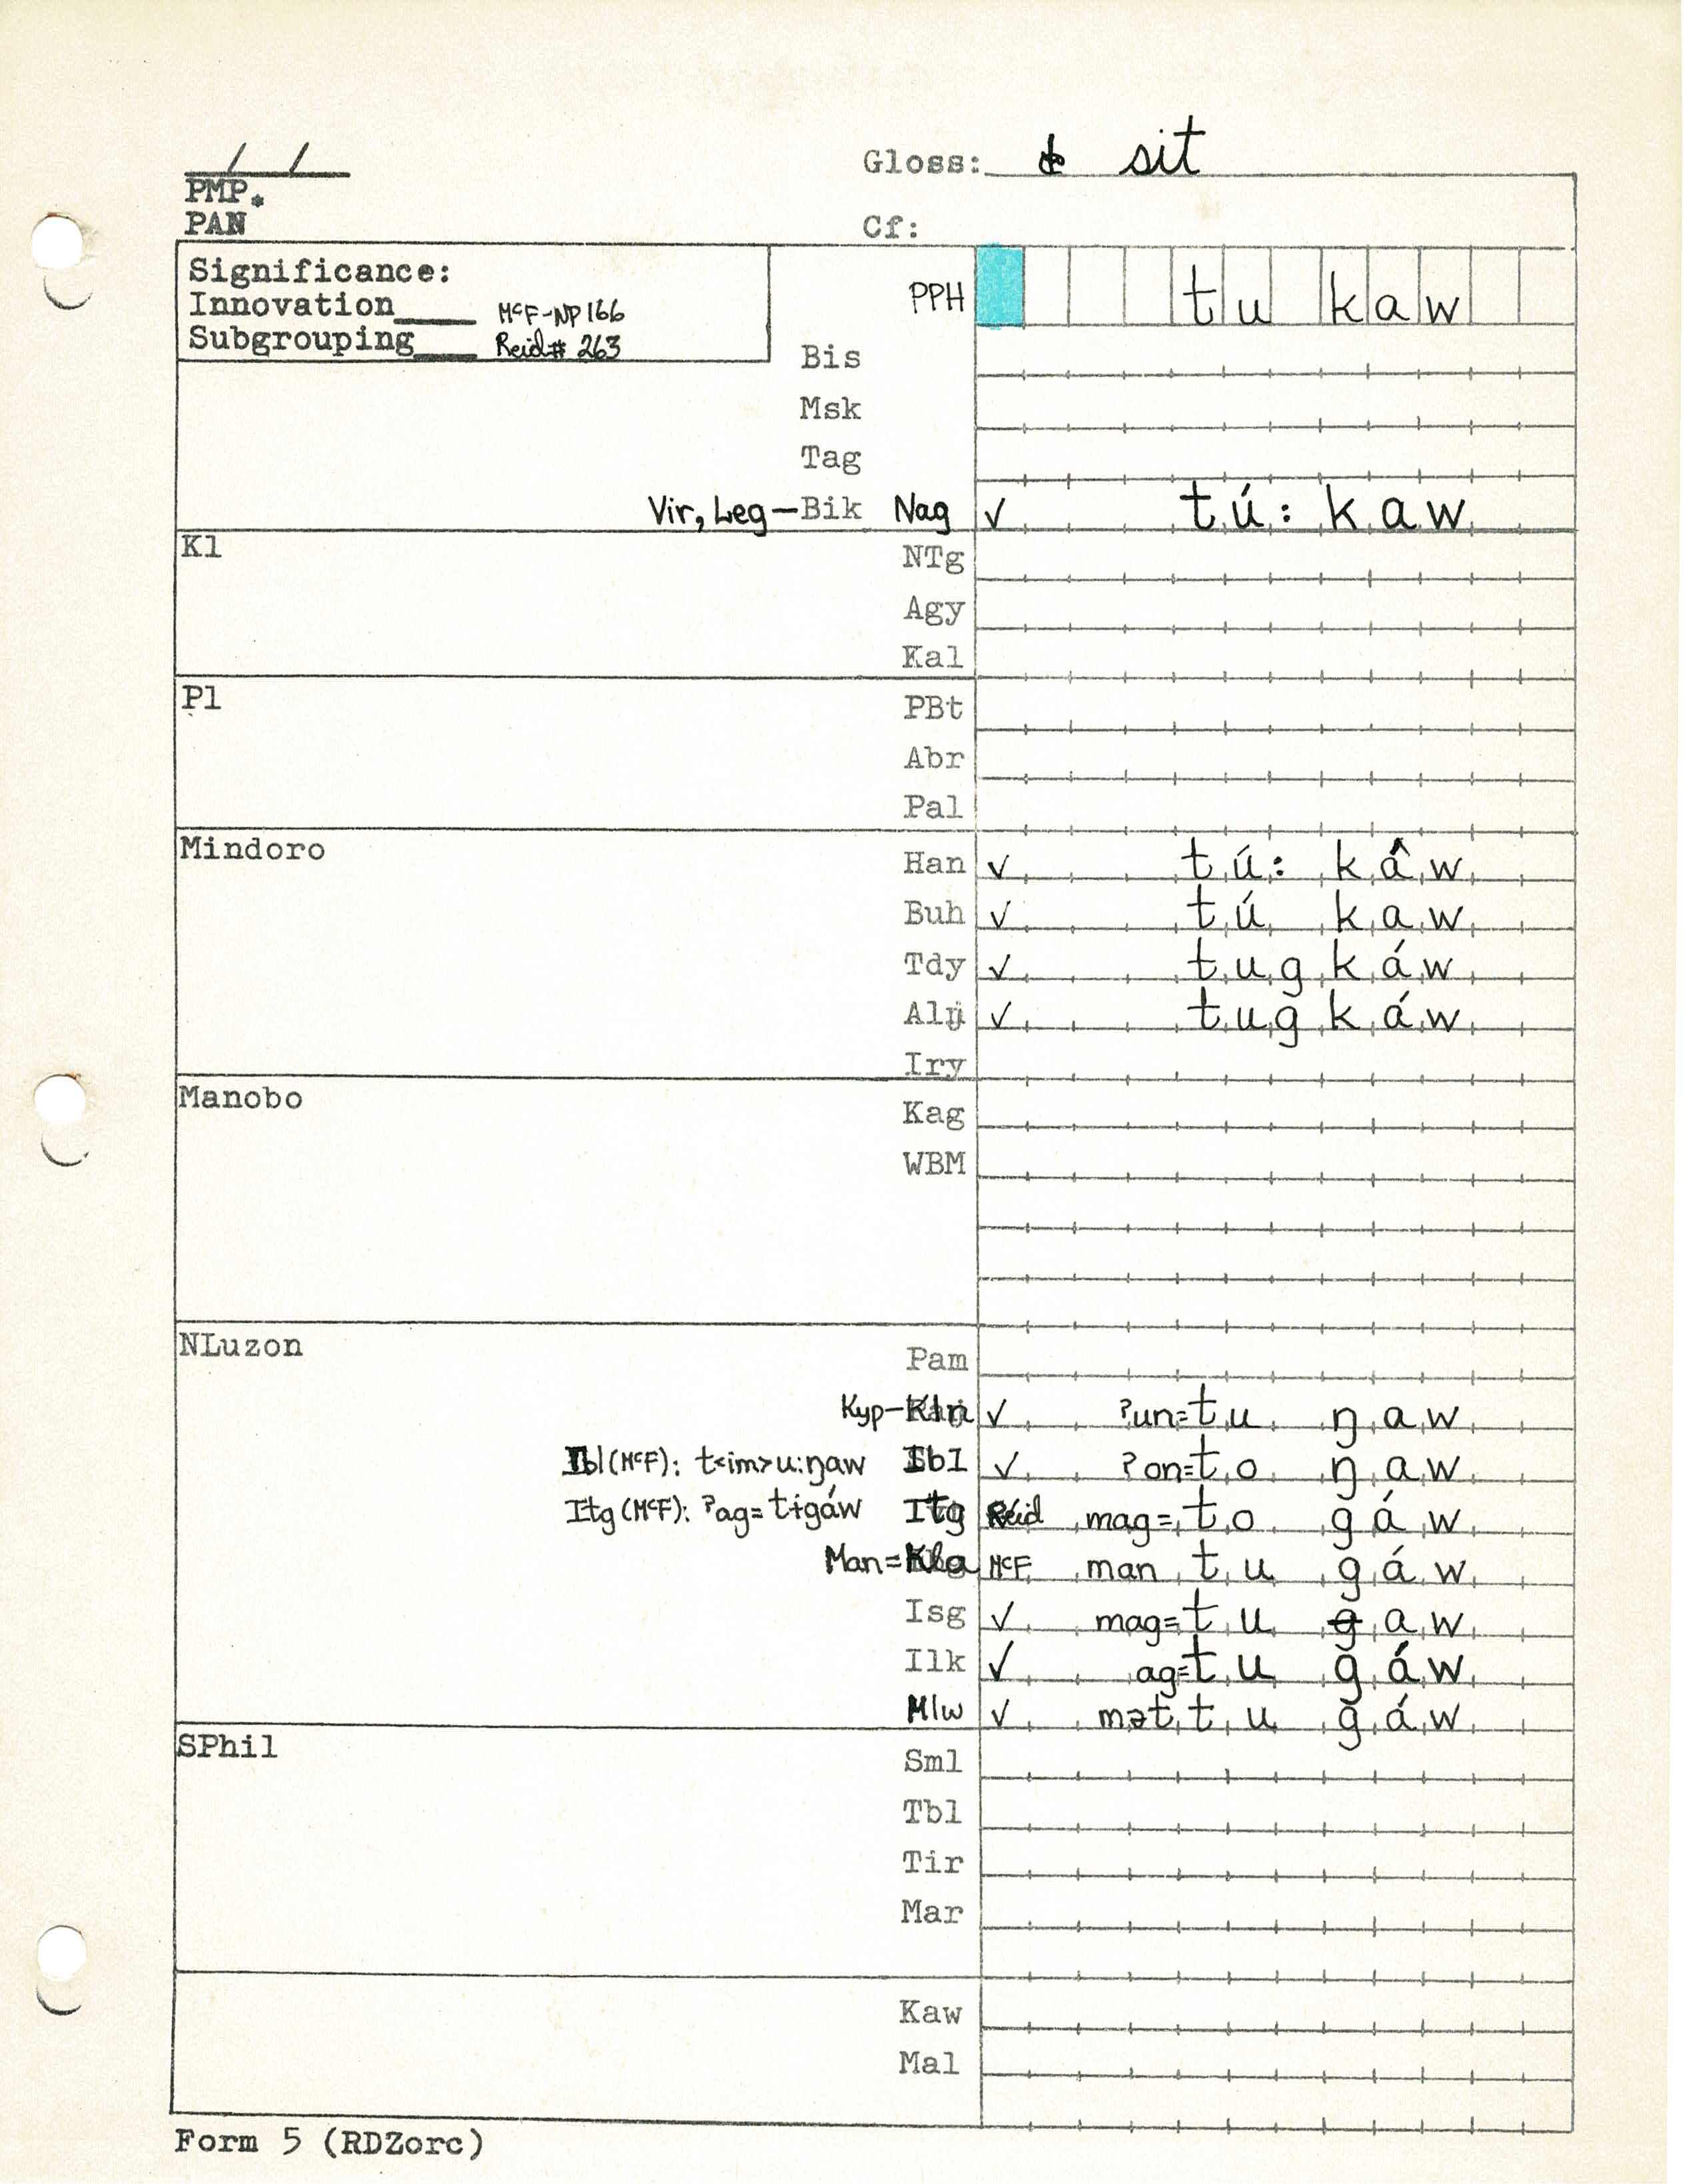 / /
Gloss: sit
PMP.
PAN
Cf:
Significance:
Innovation____ McF-NP166
Subgrouping____ Reid# 263
PPH tu kaw
Bis
Msk
Tag
Vir, Leg—Bik Nag ✓ tú: kaw
Kl
NTg
Agy
Kal
Pl
PBt
Abr
Pal
Mindoro
Han ✓ tú: kâw
Buh ✓ tú kaw
Tdy ✓ tugkáw
Aly ✓ tugkáw
Iry
Manobo
Kag
WBM
NLuzon
Pam
Kyp-Kln ✓ ʔun=tu ŋaw
Ibl (McF): t<im>u:ŋaw Ibl ✓ ʔon=to ŋaw
Itg (McF): ʔag=tɨgáw Itg Reid mag=to gáw
Man=Kla McF man tu gáw
Isg ✓ mag=tu gaw
Ilk ✓ ag=tu gáw
Mlw ✓ mət tu gáw
SPhil
Sml
Tbl
Tir
Mar
Kaw
Mal
Form 5 (RDZorc)